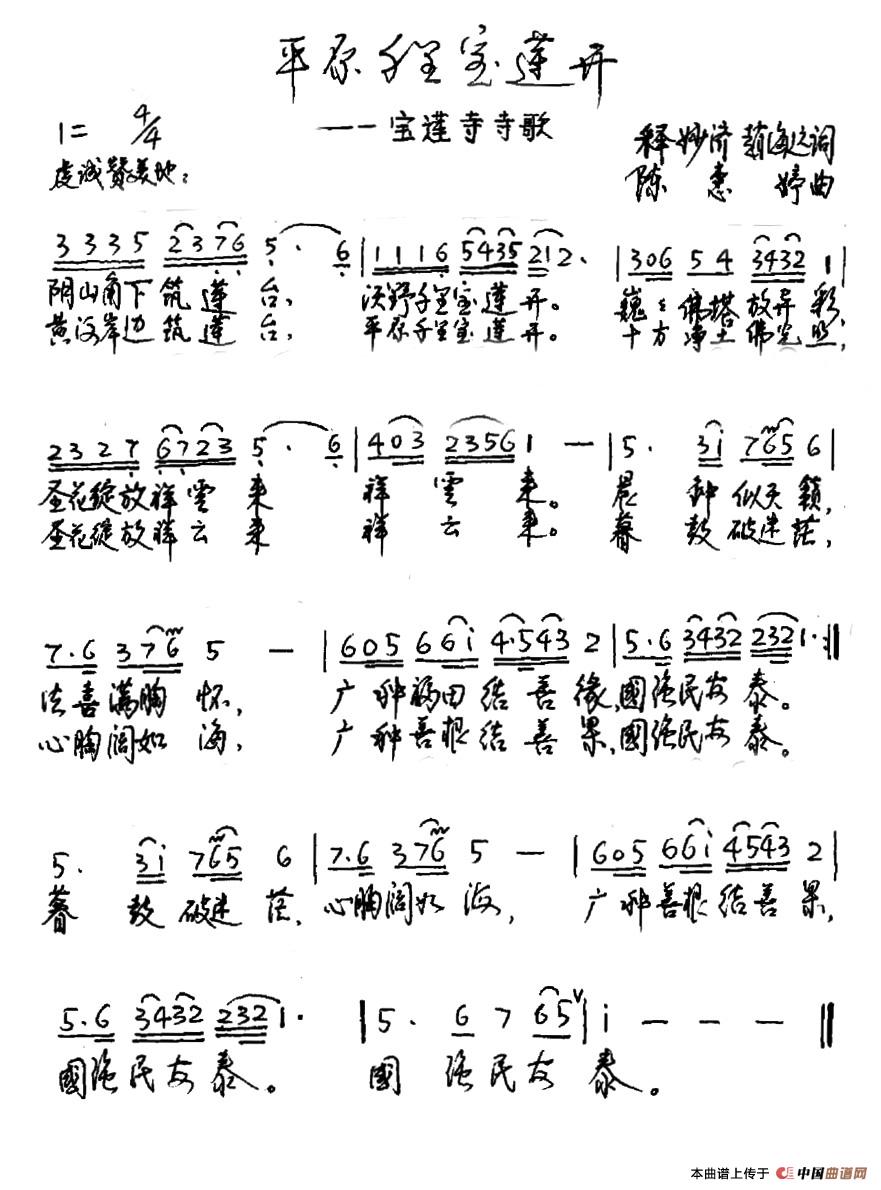 平原千里宝莲开
1= 4/4
——宝莲寺寺歌
释妙济 赵海远词
虔诚赞美地：
陈惠婷曲
3335 2376 5· 6 | 1116 5435 212· | 306 54 3432 1 |
阴山角下筑莲台， 沃野千里宝莲开。 巍〻佛塔放异彩，
黄河岸边筑莲台， 平原千里宝莲开。 十方净土佛光照，
2327 6723 5· 6 | 403 2356 1 — | 5· 3i 765 6 |
圣花绽放祥雲来 祥雲来。 晨钟似天籁，
圣花绽放祥云来 祥云来。 暮鼓破迷茫，
7·6 376 5 — | 605 66i 4·543 2 | 5·6 3432 2321· :||
法喜满胸怀， 广种福田结善缘，國强民安泰。
心胸阔如海， 广种善根结善果，國强民安泰。
5· 3i 765 6 | 7·6 376 5 — | 605 66i 4543 2 |
暮鼓破迷茫，心胸阔如海， 广种善根结善果，
5·6 3432 2321· | 5· 6 7 65 V | i — — — ||
國强民安泰。 國强民安泰。
本曲谱上传于 中国曲谱网